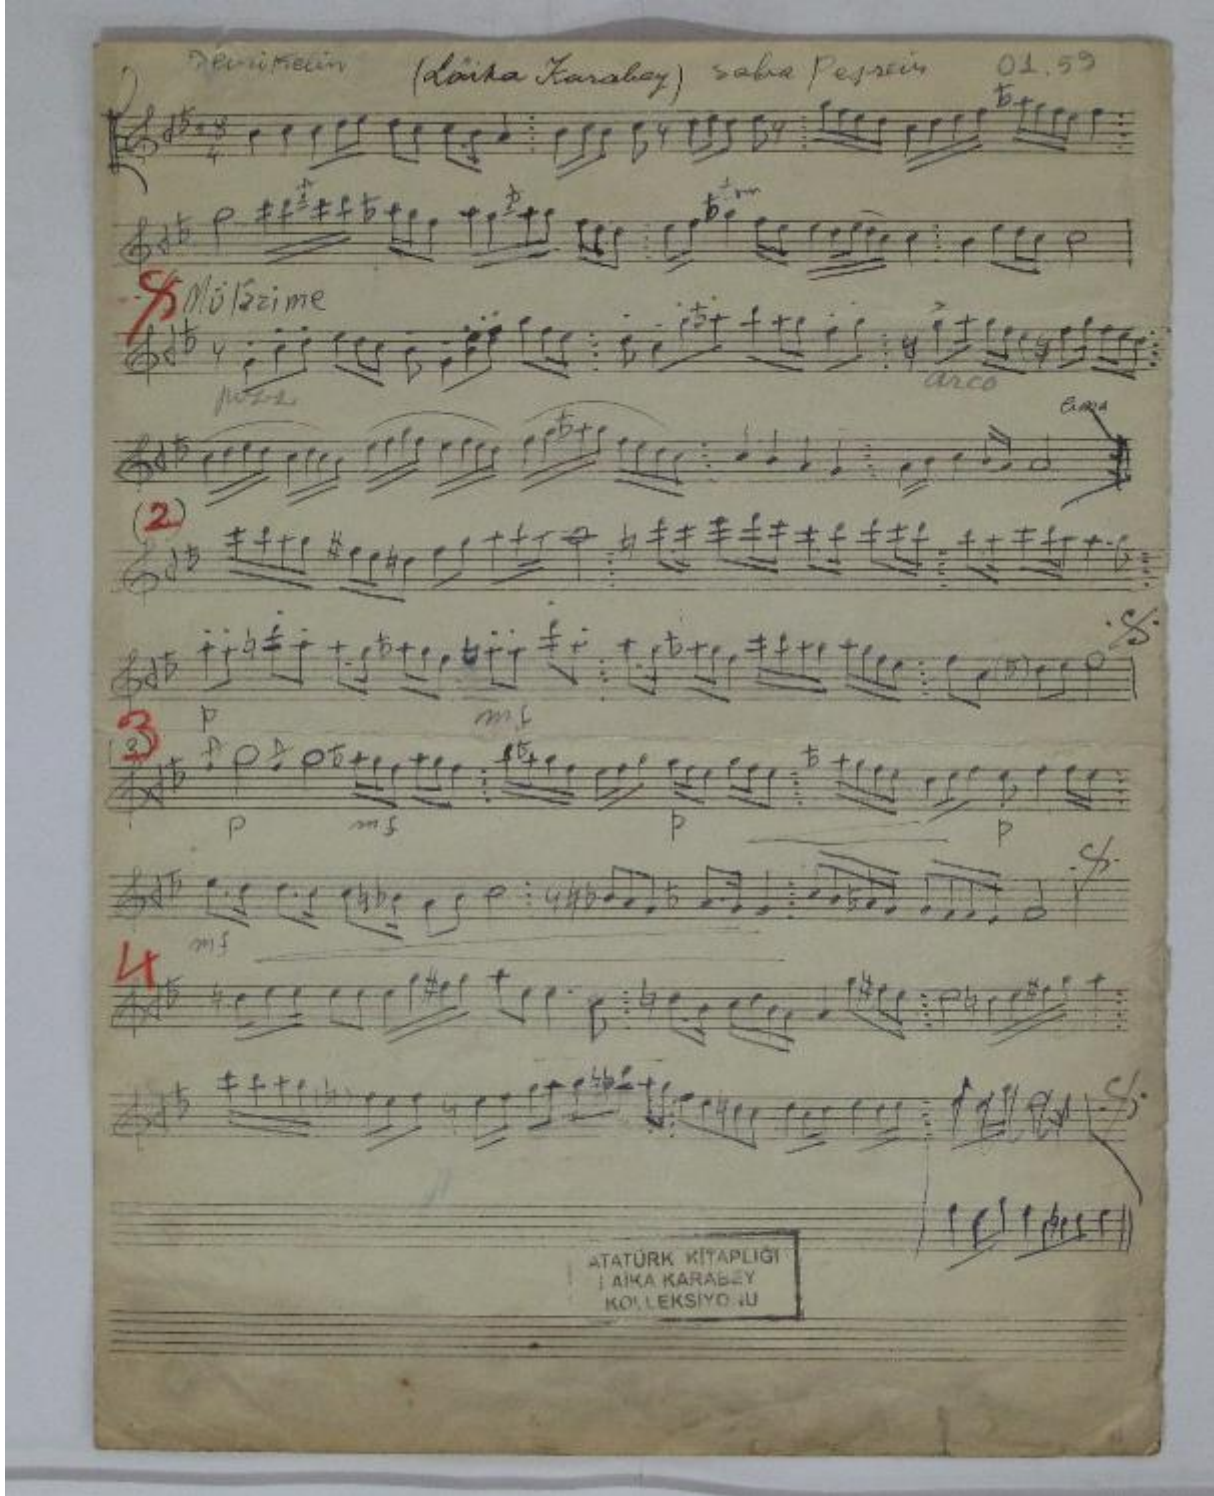 (Lâika Karabey) Saba Peşrevi 01.59
8
4
Mülâzime
pizz
arco
(2)
p mf
3
(3)
p mf p p
mf
4
ATATÜRK KİTAPLIĞI
LAİKA KARABEY
KOLLEKSİYONU